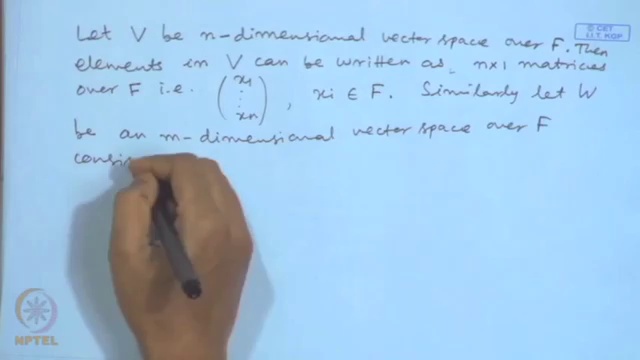 © CET
I.I.T. KGP
Let V be n-dimensional vector space over F. Then
elements in V can be written as, n×1 matrices
over F i.e. (x1 ⋮ xn), xi ∈ F. Similarly let W
be an m-dimensional vector space over F
consi
NPTEL